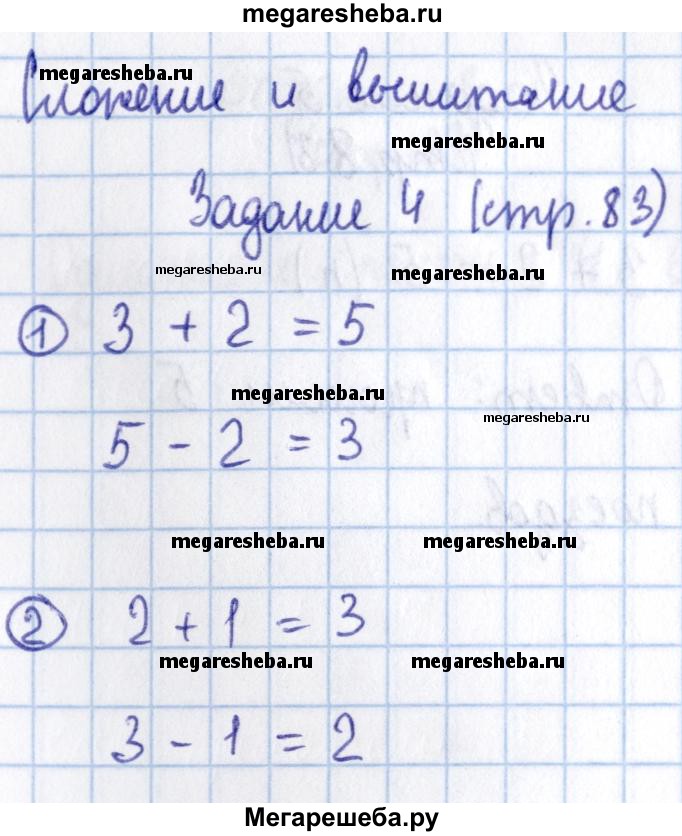 megaresheba.ru
megaresheba.ru
Сложение и вычитание
megaresheba.ru
Задание 4 (стр. 83)
megaresheba.ru megaresheba.ru
1 3 + 2 = 5
megaresheba.ru
megaresheba.ru
5 - 2 = 3
megaresheba.ru megaresheba.ru
2 2 + 1 = 3
megaresheba.ru megaresheba.ru
3 - 1 = 2
Мегарешеба.ру